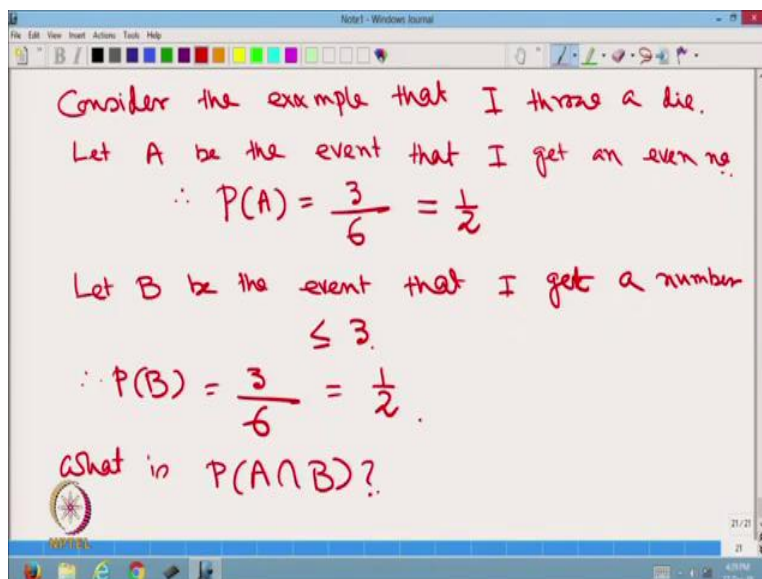 Note1 - Windows Journal
File Edit View Insert Actions Tools Help
Consider the example that I throw a die.
Let A be the event that I get an even no.
∴ P(A) = 3/6 = 1/2
Let B be the event that I get a number
≤ 3.
∴ P(B) = 3/6 = 1/2.
What is P(A∩B)?
NPTEL
21/21
21
4:29 PM